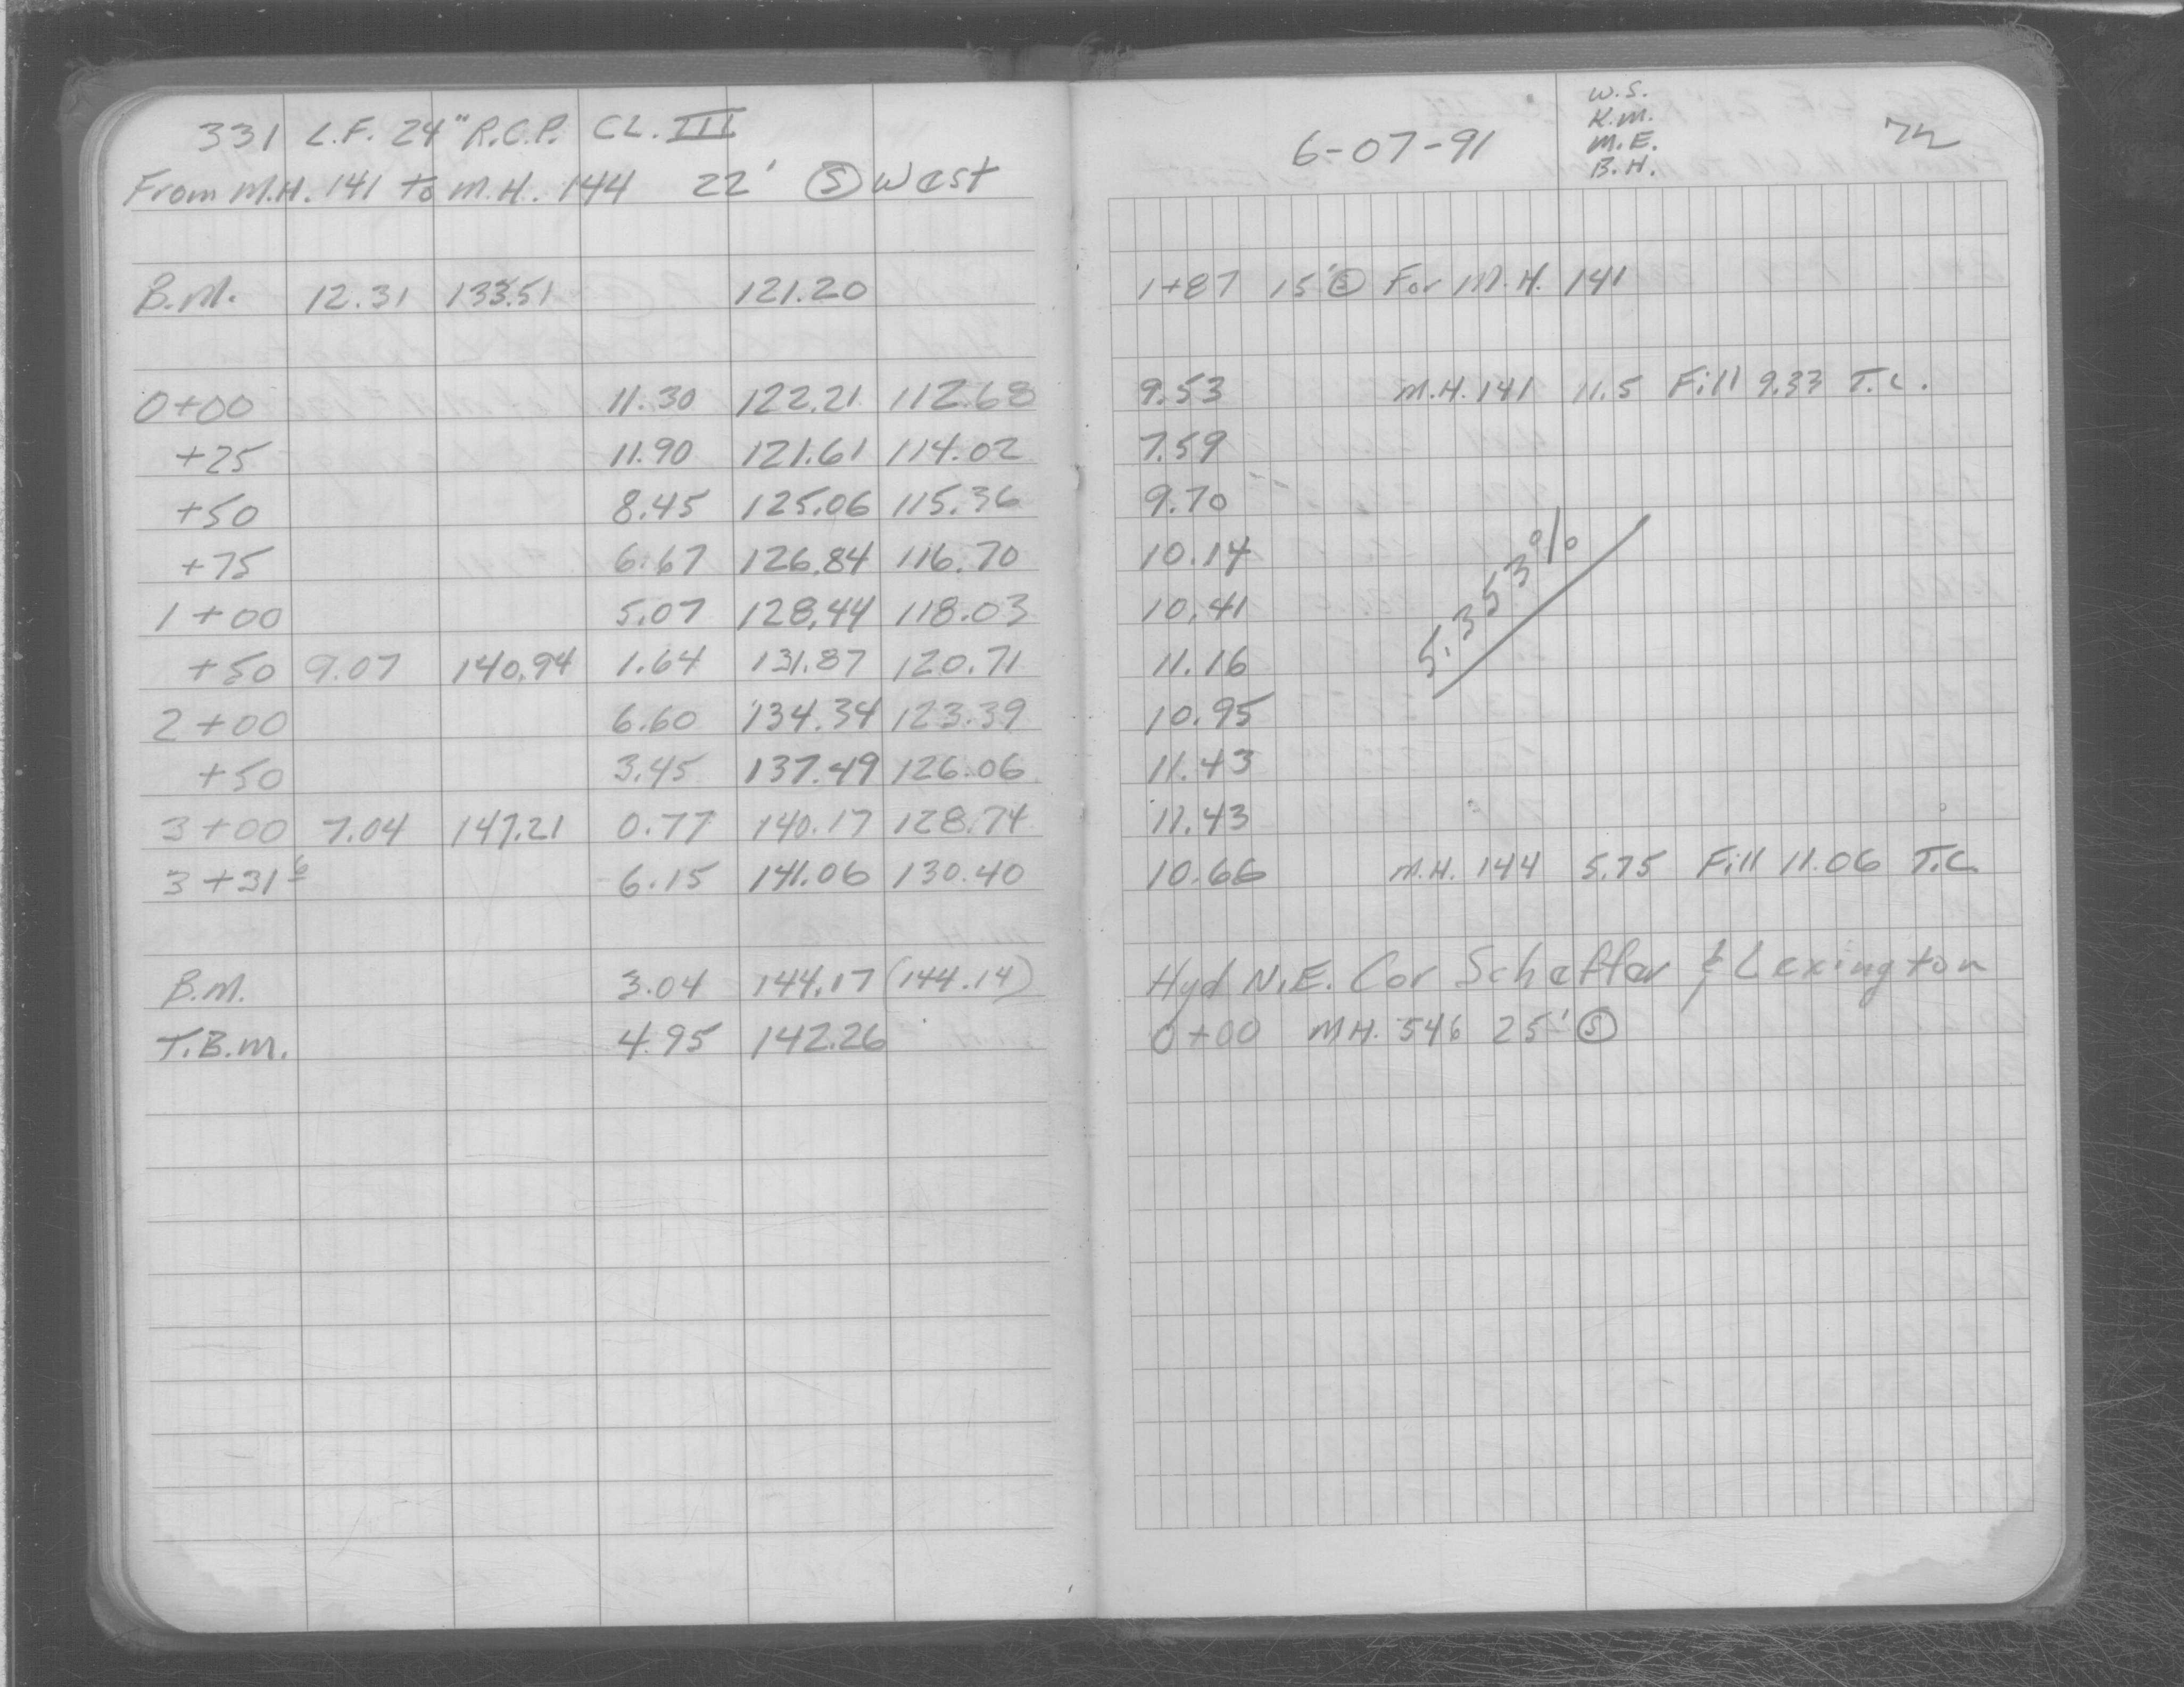 331 L.F. 24" R.C.P. CL. III
From M.H. 141 to M.H. 144 22' Ⓢ West
B.M. 12.31 133.51 121.20
0+00 11.30 122.21 112.68
+25 11.90 121.61 114.02
+50 8.45 125.06 115.36
+75 6.67 126.84 116.70
1+00 5.07 128.44 118.03
+50 9.07 140.94 1.64 131.87 120.71
2+00 6.60 134.34 123.39
+50 3.45 137.49 126.06
3+00 7.04 147.21 0.77 140.17 128.74
3+31⁶ 6.15 141.06 130.40
B.M. 3.04 144.17 (144.14)
T.B.M. 4.95 142.26
6-07-91
W.S.
K.M.
M.E.
B.H.
72
1+87 15' Ⓢ For M.H. 141
9.53 M.H. 141 11.5 Fill 9.33 T.C.
7.59
9.70
10.14
10.41
5.3553%
11.16
10.95
11.43
11.43
10.66 M.H. 144 5.75 Fill 11.06 T.C.
Hyd N.E. Cor Scheffer & Lexington
0+00 MH. 546 25' Ⓢ